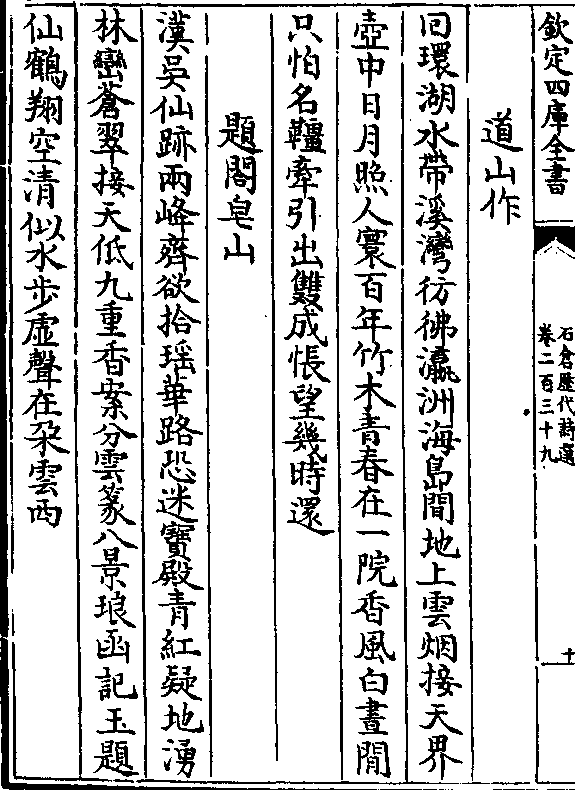 欽定四庫全書
石倉歷代詩選
卷二百三十九
十
道山作
回環湖水帶溪灣彷彿瀛洲海島間地上雲烟接天界
壺中日月照人寰百年竹木青春在一院香風白晝閒
只怕名韁牽引出雙成悵望幾時還
題閣皂山
漢吳仙跡兩峰齊欲拾瑶華路恐迷寶殿青紅疑地湧
林巒蒼翠接天低九重香案分雲篆八景琅函記玉題
仙鶴翔空清似水步虛聲在朶雲西